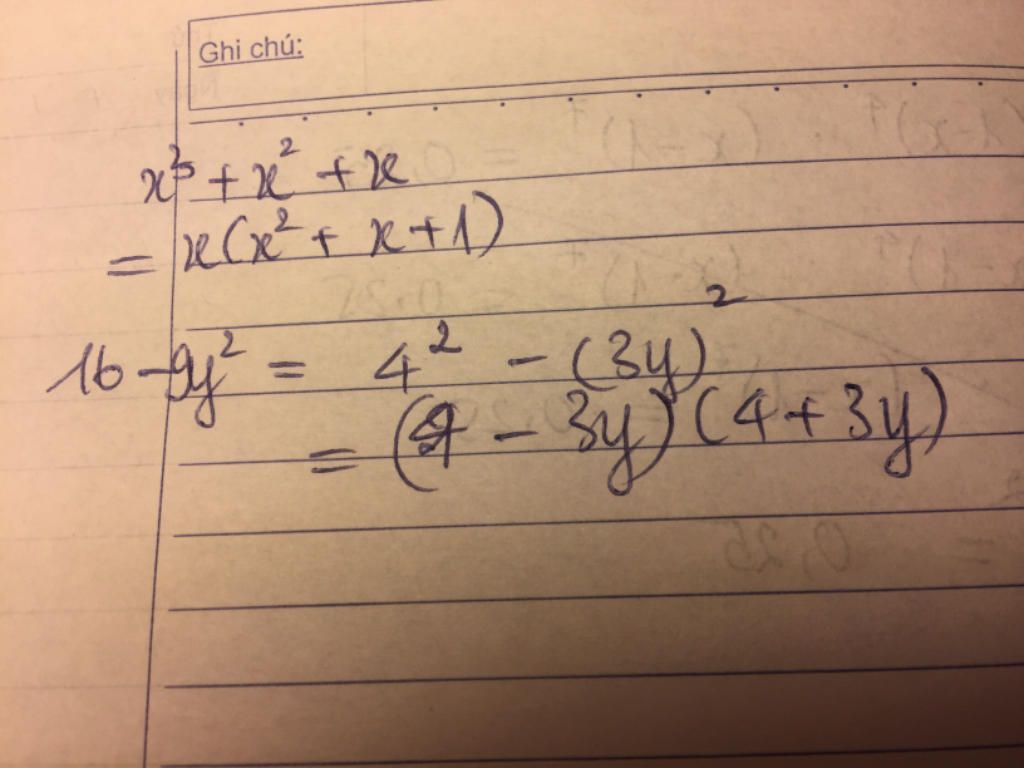 Ghi chú:
x³ + x² + x
= x(x² + x + 1)
16 - 9y² = 4² - (3y)²
= (4 - 3y)(4 + 3y)